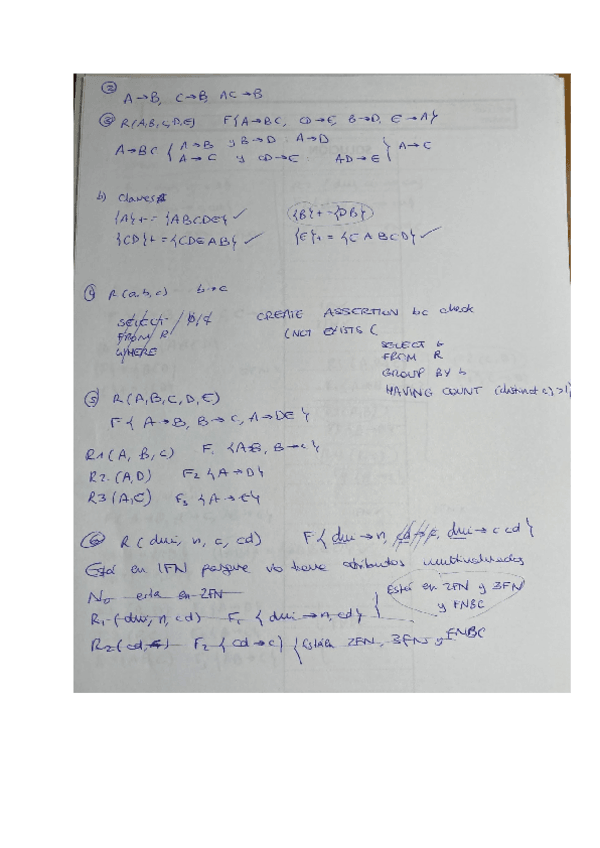 ②
A→B, C→B, AC→B
③ R(A,B,C,D,E) F{A→BC, CD→E, B→D, E→A}
A→BC { A→B y B→D : A→D
A→C y CD→E AD→E } A→C
b) Claves
{A}+ = {ABCDE} ✓ {B}+ = {DB}
{CD}+ = {CDEAB} ✓ {E}+ = {EABCD} ✓
④ R(a,b,c) b→c
SELECT CREATE ASSERTION bc check
FROM R (NOT EXISTS (
WHERE SELECT b
FROM R
GROUP BY b
HAVING COUNT (distinct c) >1)
⑤ R(A,B,C,D,E)
F{ A→B, B→C, A→DE }
R1(A, B, C) F1 {A→B, B→C}
R2 (A,D) F2 {A→D}
R3 (A,E) F3 {A→E}
⑥ R(dni, n, c, cd) F{ dni→n, dni→c cd}
Está en 1FN porque no tiene atributos multivaluados
No esta en 2FN Está en 2FN y 3FN
y FNBC
R1 (dni, n, cd) F1 {dni→n, cd}
R2 (cd, c) F2 { cd→c } Están 2FN, 3FN y FNBC